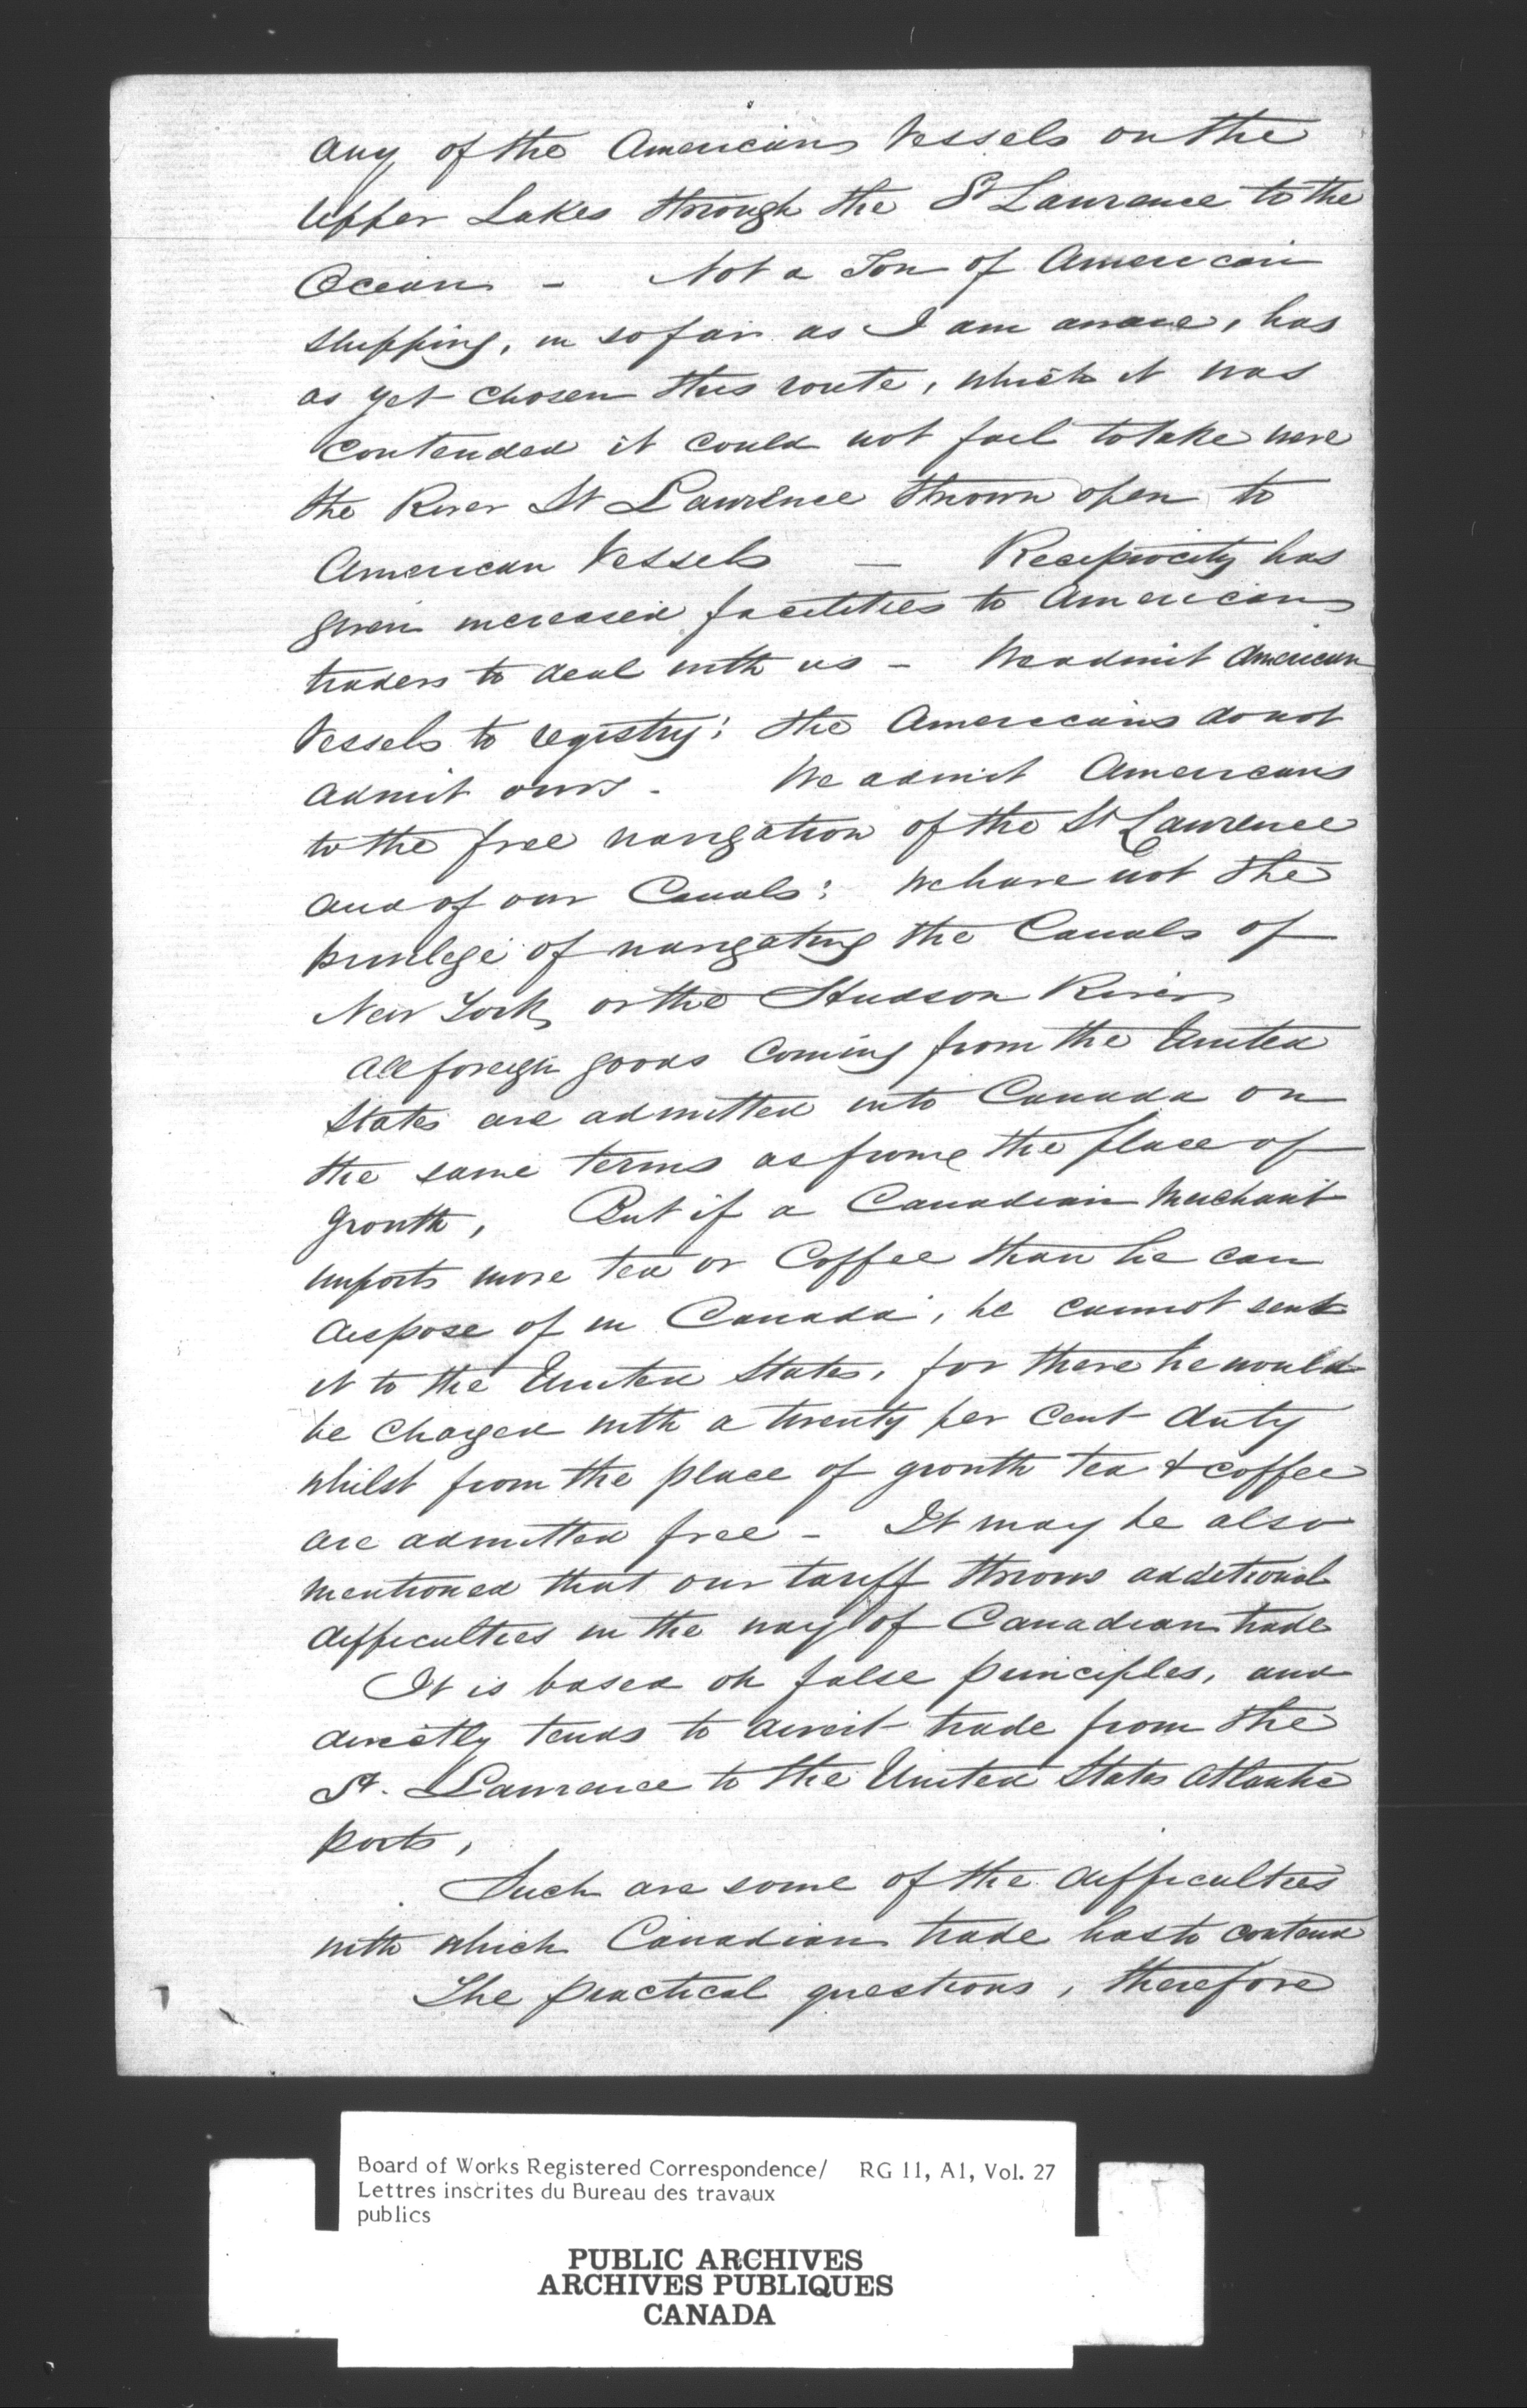 any of the American Vessels on the
Upper Lakes through the St Laurence to the
Ocean - Not a Ton of American
shipping, in so far as I am aware, has
as yet chosen this route, which it was
contended it could not fail to take were
the River St Lawrence thrown open to
American Vessels — Reciprocity has
given increased facilities to American
traders to deal with us - We admit American
Vessels to registry; the Americans do not
admit ours - We admit Americans
to the free navigation of the St Lawrence
and of our Canals: We have not the
privilege of navigating the Canals of
New York, or the Hudson River
All foreign goods coming from the United
States are admitted into Canada on
the same terms as from the place of
growth, But if a Canadian Merchant
imports more tea or Coffee than he can
dispose of in Canada, he cannot send
it to the United States, for there he would
be charged with a twenty per Cent duty
whilst from the place of growth tea & coffee
are admitted free - It may be also
mentioned that our tariff throws additional
difficulties in the way of Canadian trade
It is based on false principles, and
directly tends to divert trade from the
St. Lawrence to the United States Atlantic
ports,
Such are some of the difficulties
with which Canadian trade has to contend
The practical questions, therefore
Board of Works Registered Correspondence/ RG 11, A1, Vol. 27
Lettres inscrites du Bureau des travaux
publics
PUBLIC ARCHIVES
ARCHIVES PUBLIQUES
CANADA